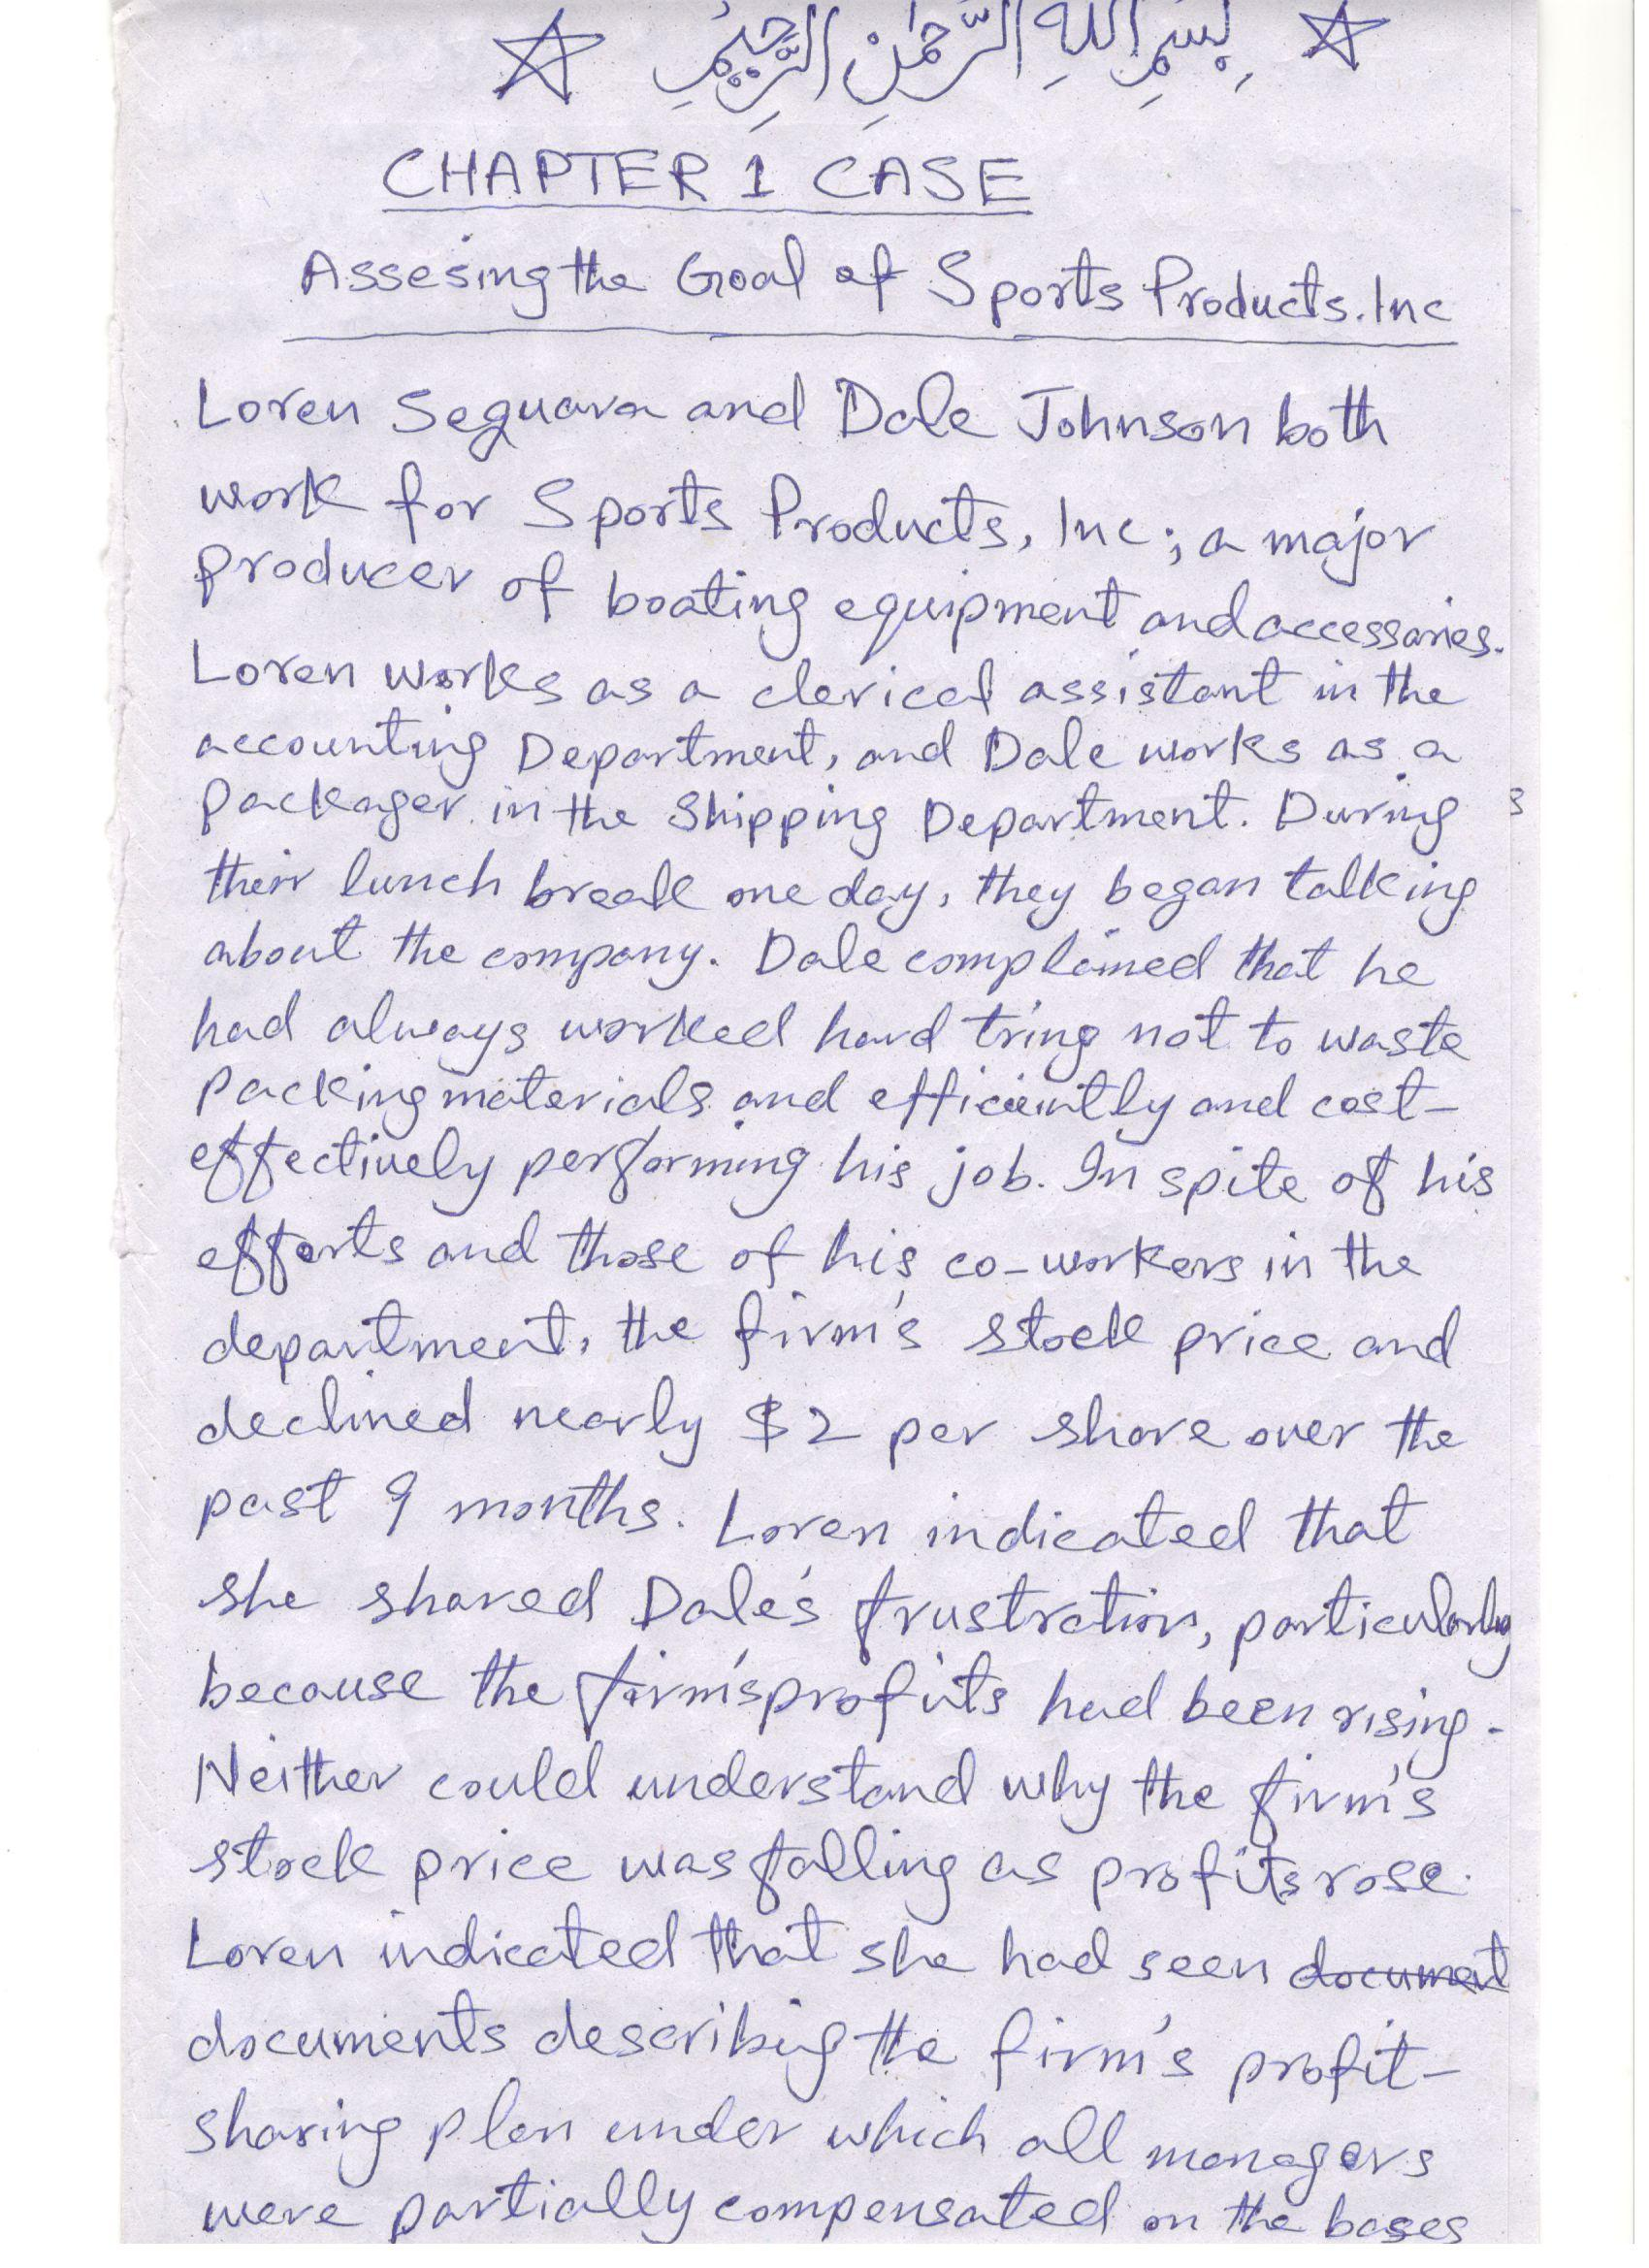 ☆ بِسْمِ اللهِ الرَّحْمٰنِ الرَّحِيْمِ ☆
CHAPTER 1 CASE
Assesing the Goal of Sports Products.Inc
Loren Seguara and Dale Johnson both
work for Sports Products, Inc; a major
producer of boating equipment and accessaries.
Loren works as a clerical assistant in the
accounting Department, and Dale works as a
Packager in the Shipping Department. During
their lunch break one day, they began talking
about the company. Dale complained that he
had always worked hard tring not to waste
packing materials and efficiently and cost-
effectively performing his job. In spite of his
efforts and those of his co-workers in the
department, the firm's stock price and
declined nearly $2 per share over the
past 9 months. Loren indicated that
she shared Dale's frustration, particularly
because the firm's profits had been rising.
Neither could understand why the firm's
stock price was falling as profits rose.
Loren indicated that she had seen document
documents describing the firm's profit-
sharing plan under which all managers
were partially compensated on the bases